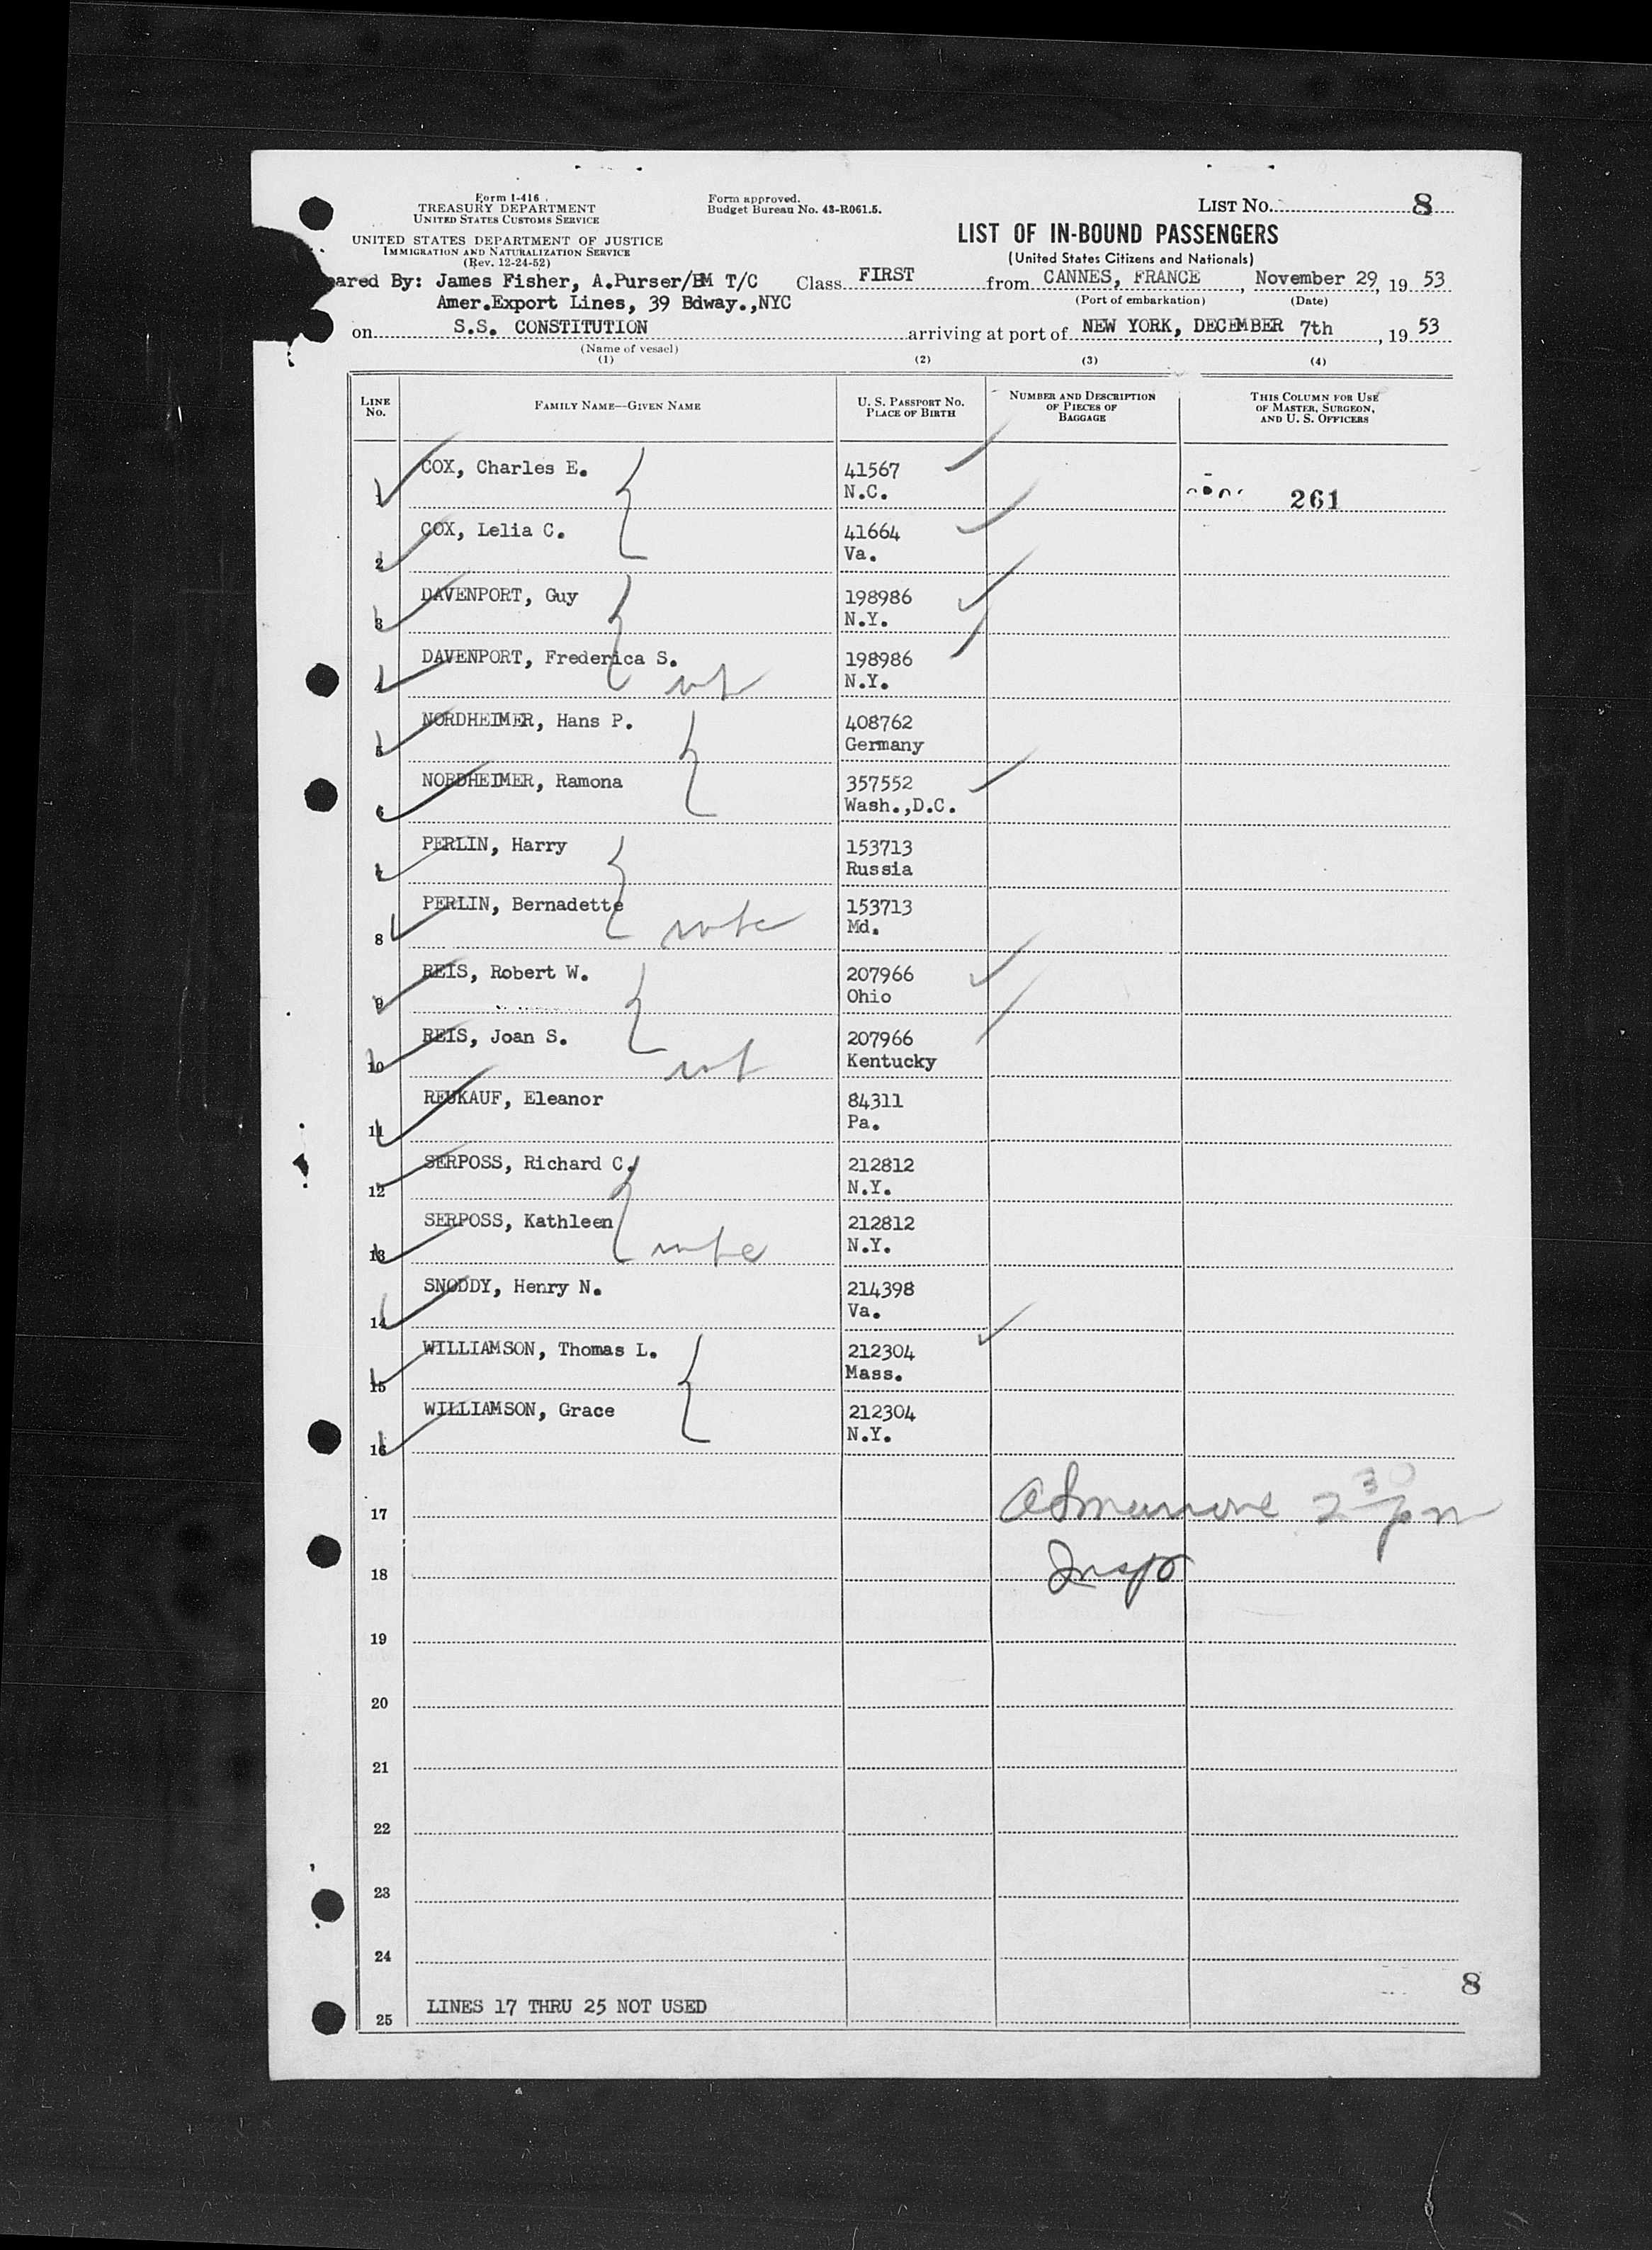 Form I-416
TREASURY DEPARTMENT
UNITED STATES CUSTOMS SERVICE
UNITED STATES DEPARTMENT OF JUSTICE
IMMIGRATION AND NATURALIZATION SERVICE
(Rev. 12-24-52)
Form approved.
Budget Bureau No. 43-R061.5.
LIST No. 8
LIST OF IN-BOUND PASSENGERS
(United States Citizens and Nationals)
ared By: James Fisher, A.Purser/BM T/C Class FIRST from CANNES, FRANCE, November 29, 1953
Amer.Export Lines, 39 Bdway.,NYC (Port of embarkation) (Date)
on S.S. CONSTITUTION arriving at port of NEW YORK, DECEMBER 7th, 1953
(Name of vessel)
(1) (2) (3) (4)
LINE No. FAMILY NAME—GIVEN NAME U. S. PASSPORT No. PLACE OF BIRTH NUMBER AND DESCRIPTION OF PIECES OF BAGGAGE THIS COLUMN FOR USE OF MASTER, SURGEON, AND U. S. OFFICERS
1 COX, Charles E. 41567
N.C. 261
2 COX, Lelia C. 41664
Va.
3 DAVENPORT, Guy 198986
N.Y.
4 DAVENPORT, Frederica S. 198986
N.Y.
5 NORDHEIMER, Hans P. 408762
Germany
6 NORDHEIMER, Ramona 357552
Wash.,D.C.
7 PERLIN, Harry 153713
Russia
8 PERLIN, Bernadette 153713
Md.
9 REIS, Robert W. 207966
Ohio
10 REIS, Joan S. 207966
Kentucky
11 REUKAUF, Eleanor 84311
Pa.
12 SERPOSS, Richard C. 212812
N.Y.
13 SERPOSS, Kathleen 212812
N.Y.
14 SNODDY, Henry N. 214398
Va.
15 WILLIAMSON, Thomas L. 212304
Mass.
16 WILLIAMSON, Grace 212304
N.Y.
17 2 30 pm
18 Insp
19
20
21
22
23
24
8
25 LINES 17 THRU 25 NOT USED